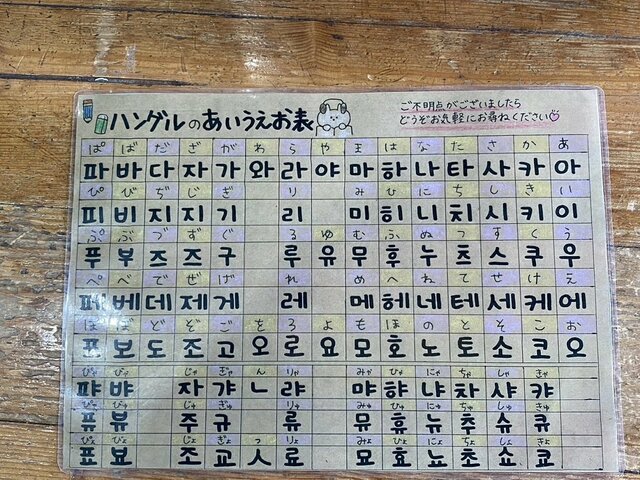 ハングルのあいうえお表
ご不明点がございましたら
どうぞお気軽にお尋ねください♡
ぱ ば だ ざ が わ ら や ま は な た さ か あ
파 바 다 자 가 와 라 야 마 하 나 타 사 카 아
ぴ び ぢ じ ぎ り み ひ に ち し き い
피 비 지 지 기 리 미 히 니 치 시 키 이
ぷ ぶ づ ず ぐ る ゆ む ふ ぬ つ す く う
푸 부 즈 즈 구 루 유 무 후 누 츠 스 쿠 우
ぺ べ で ぜ げ れ め へ ね て せ け え
페 베 데 제 게 레 메 헤 네 테 세 케 에
ぽ ぼ ど ぞ ご を ろ よ も ほ の と そ こ お
포 보 도 조 고 오 로 요 모 호 노 토 소 코 오
ぴゃ びゃ じゃ ぎゃ ん りゃ みゃ ひゃ にゃ ちゃ しゃ きゃ
퍄 뱌 자 갸 ㄴ 랴 먀 햐 냐 차 샤 캬
ぴゅ びゅ じゅ ぎゅ りゅ みゅ ひゅ にゅ ちゅ しゅ きゅ
퓨 뷰 주 규 류 뮤 휴 뉴 추 슈 큐
ぴょ びょ じょ ぎょ っ りょ みょ ひょ にょ ちょ しょ きょ
표 뵤 조 교 ㅅ 료 묘 효 뇨 초 쇼 쿄